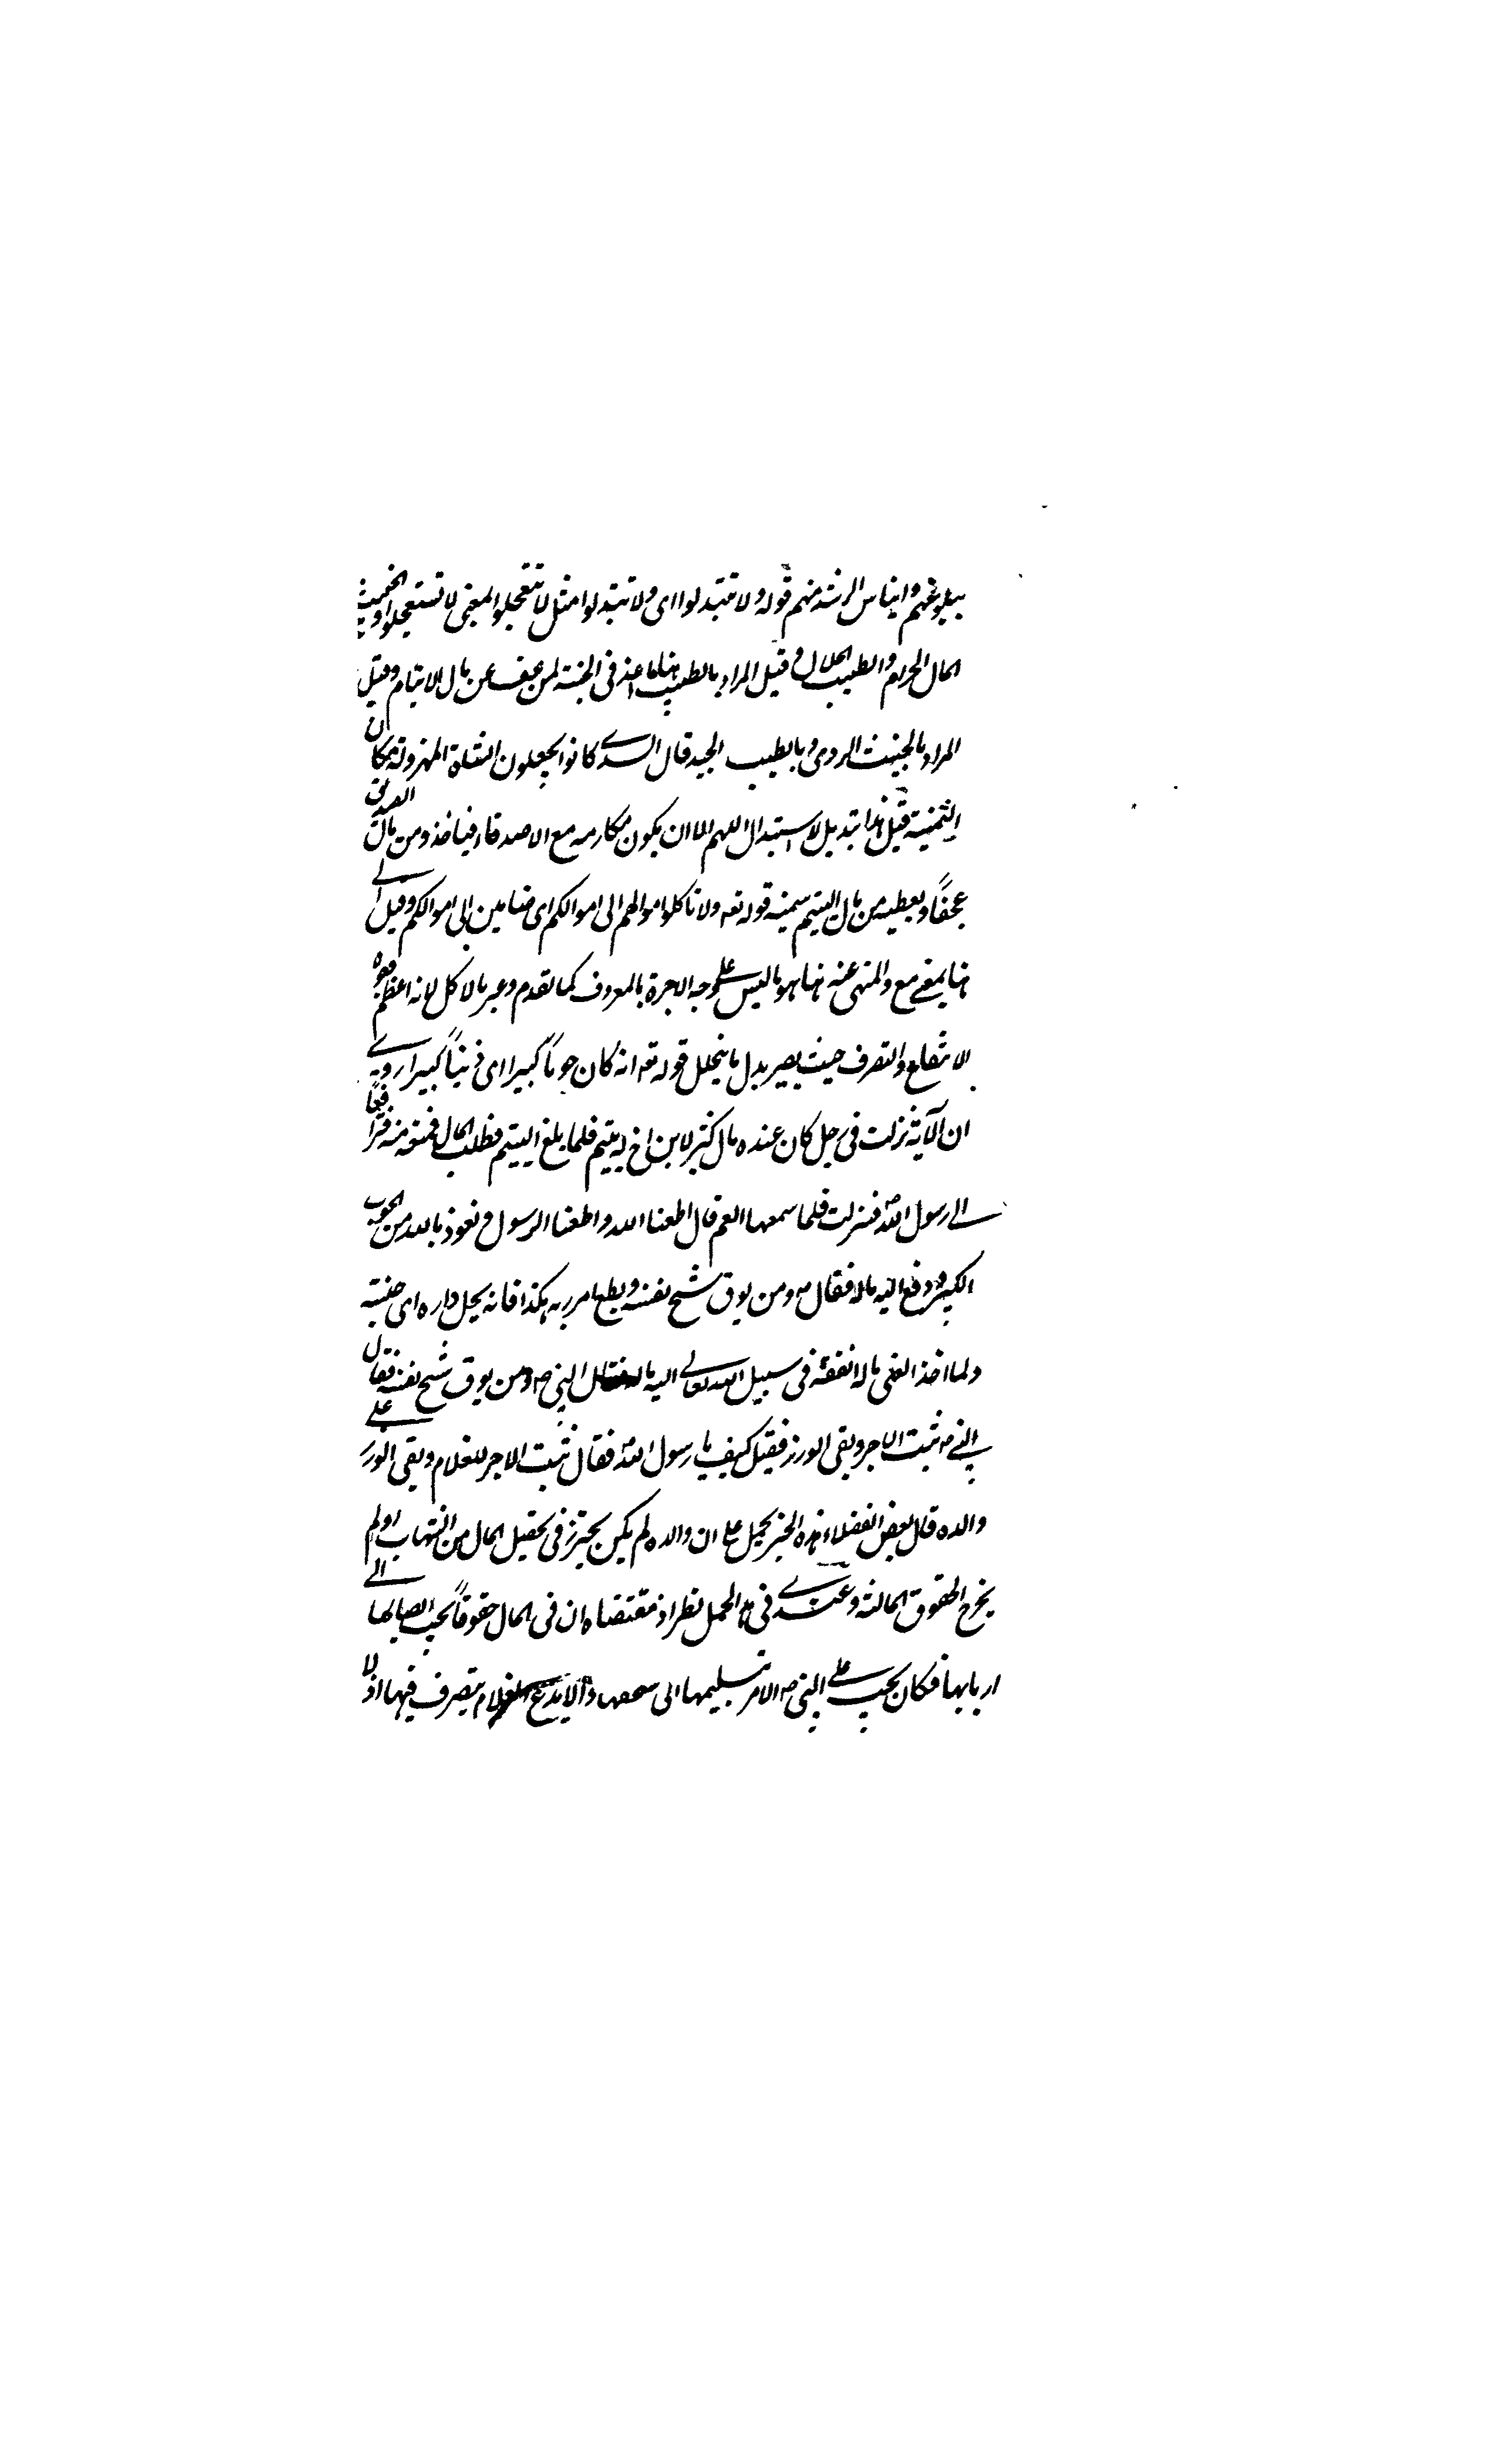 ببلوغهم وايناس الرشد منهم قوله ولا تتبدلوا اى ولا تتبدلوا مثل لا تتعجلوا المعنى لا تستعجلوا والخبيث
المال الحرام والطيب الحلال وقيل المراد بالطيب هنا ما اعد فى الجنة لمن عف عن مال الايتام وقيل
المراد بالخبيث الردى وبالطيب الجيد قال السدى كانوا يجعلون الشاة المهزولة مكان
الثمنية قيل هذا تبديل لا استبدال اللهم الا ان يكون مكارمه مع الاصدقاء فياخذ من مال الصديق
عجفاً ويعطيه من مال اليتيم سمينه قوله تعه ولا تاكلوا اموالهم الى اموالكم اى ضامين الى اموالكم وقيل الى
هنا بمعنى مع والمنهى عنه هنا هو ما ليس على وجه الاجرة بالمعروف كما تقدم وعبر بالاكل لانه اعظم وجوه
الانتفاع والتصرف حيث يصير بدل ما يتحلل قوله تعه انه كان حوباً كبيرا اى ذنباً كبيرا روى
ان الآية نزلت فى رجل كان عنده مال كثير لابن اخ له يتيم فلما بلغ اليتيم فطلب المال فمنعه منه فترافعا
الى رسول الله ص فنزلت فلما سمعها العم قال اطعنا الله واطعنا الرسول ونعوذ بالله من الحوب
الكبير ودفع اليه ماله فقال ص ومن يوق شح نفسه ويطع امر ربه هكذا فانه يحل داره اى جنته
ولما اخذ الفتى ماله انفقه فى سبيل الله تعالى النبى ص ومن يوق شح نفسه فقال
النبى ص ثبت الاجر وبقى الوزر فقيل كيف يا رسول الله ص فقال ثبت الاجر للغلام وبقى الوزر على
والده قال بعض الفضلاء هذه الخبر يحمل على ان والده لم يكن يحترز فى تحصيل المال من الشبهات او لم
يخرج الحقوق المالية وعندى فى هذا الحمل نظر اذ مقتضاه ان فى المال حقوقاً يجب ايصالها الى
اربابها فكان يجب على النبى ص الامر بتسليمها الى والا يدع الغلام يتصرف فيها اذ لا